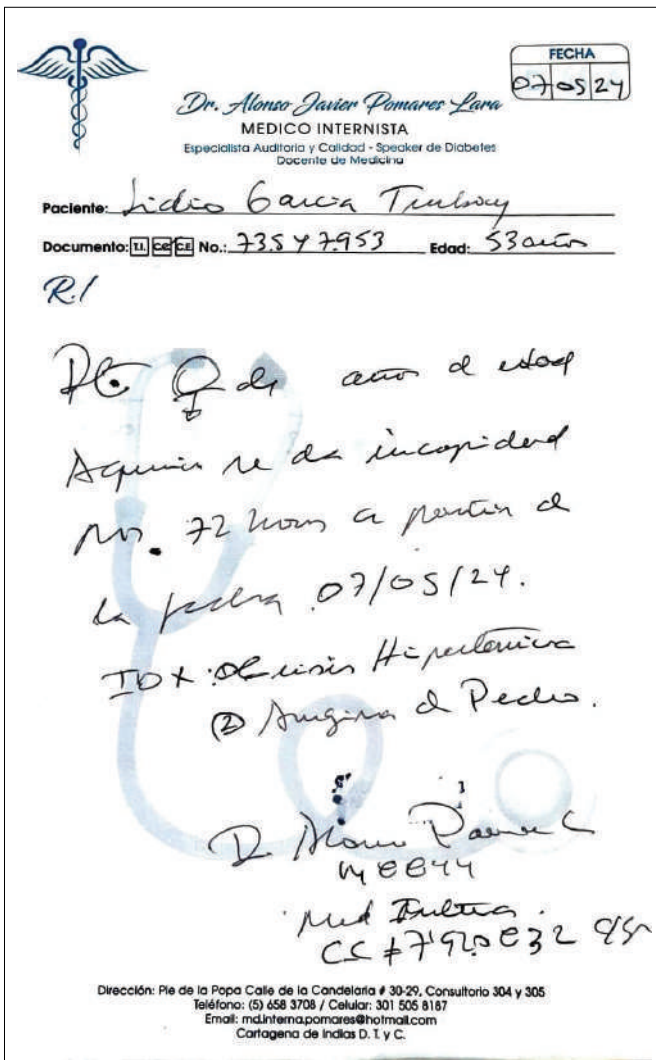 FECHA
07 05 24
Dr. Alonso Javier Pomares Lara
MEDICO INTERNISTA
Especialista Auditoria y Calidad - Speaker de Diabetes
Docente de Medicina
Paciente: Lidio Garcia Turbay
Documento: T.I. C.C. C.E. No.: 73547.953 Edad: 53 años
R./
Pte de años d edad
A quien se da incapacidad
por. 72 horas a partir d
la fecha 07/05/24.
IDX: Crisis Hipertensiva
② Angina d Pecho.
Dr Alonso Pomares L
Med Interna.
Dirección: Pie de la Popa Calle de la Candelaria # 30-29, Consultorio 304 y 305
Teléfono: (5) 658 3708 / Celular: 301 505 8187
Email: md.interna.pomares@hotmail.com
Cartagena de Indias D. T. y C.